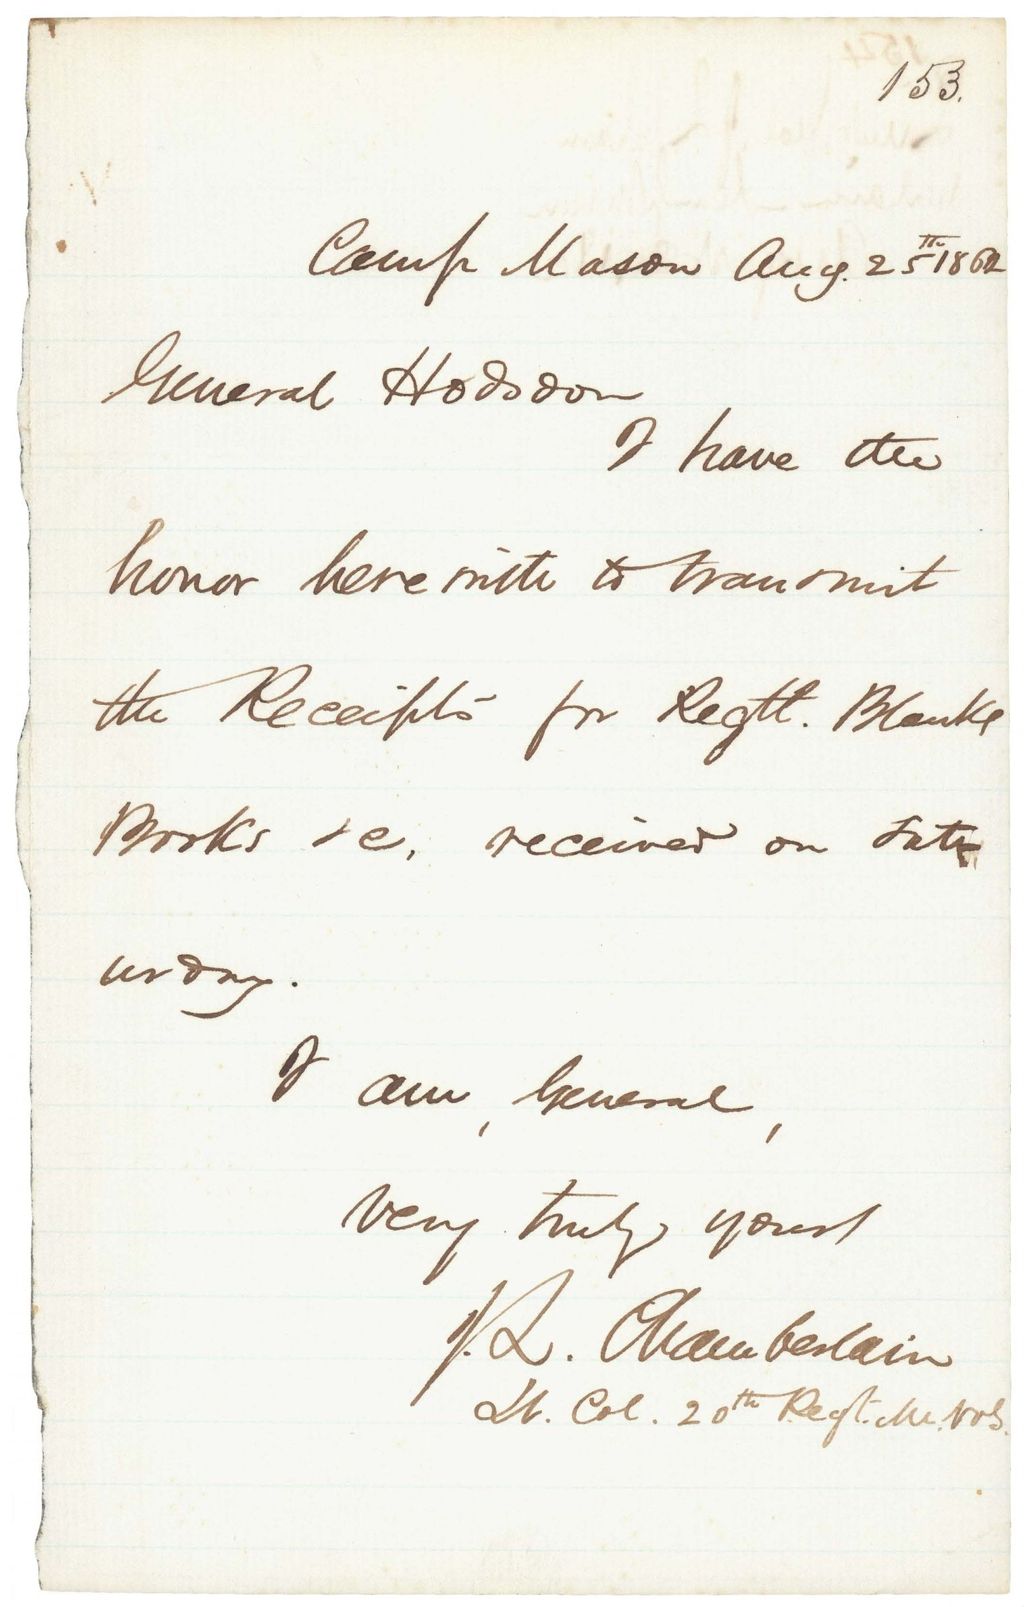 153.
Camp Mason Aug. 25th 1862
General Hodsdon
I have the
honor herewith to transmit
the Receipts for Regtl. Blanks
Books &c, received on Satu
urday.
I am, General,
very truly yours
J. L. Chamberlain
Lt. Col. 20th Regt. Me. Vols.